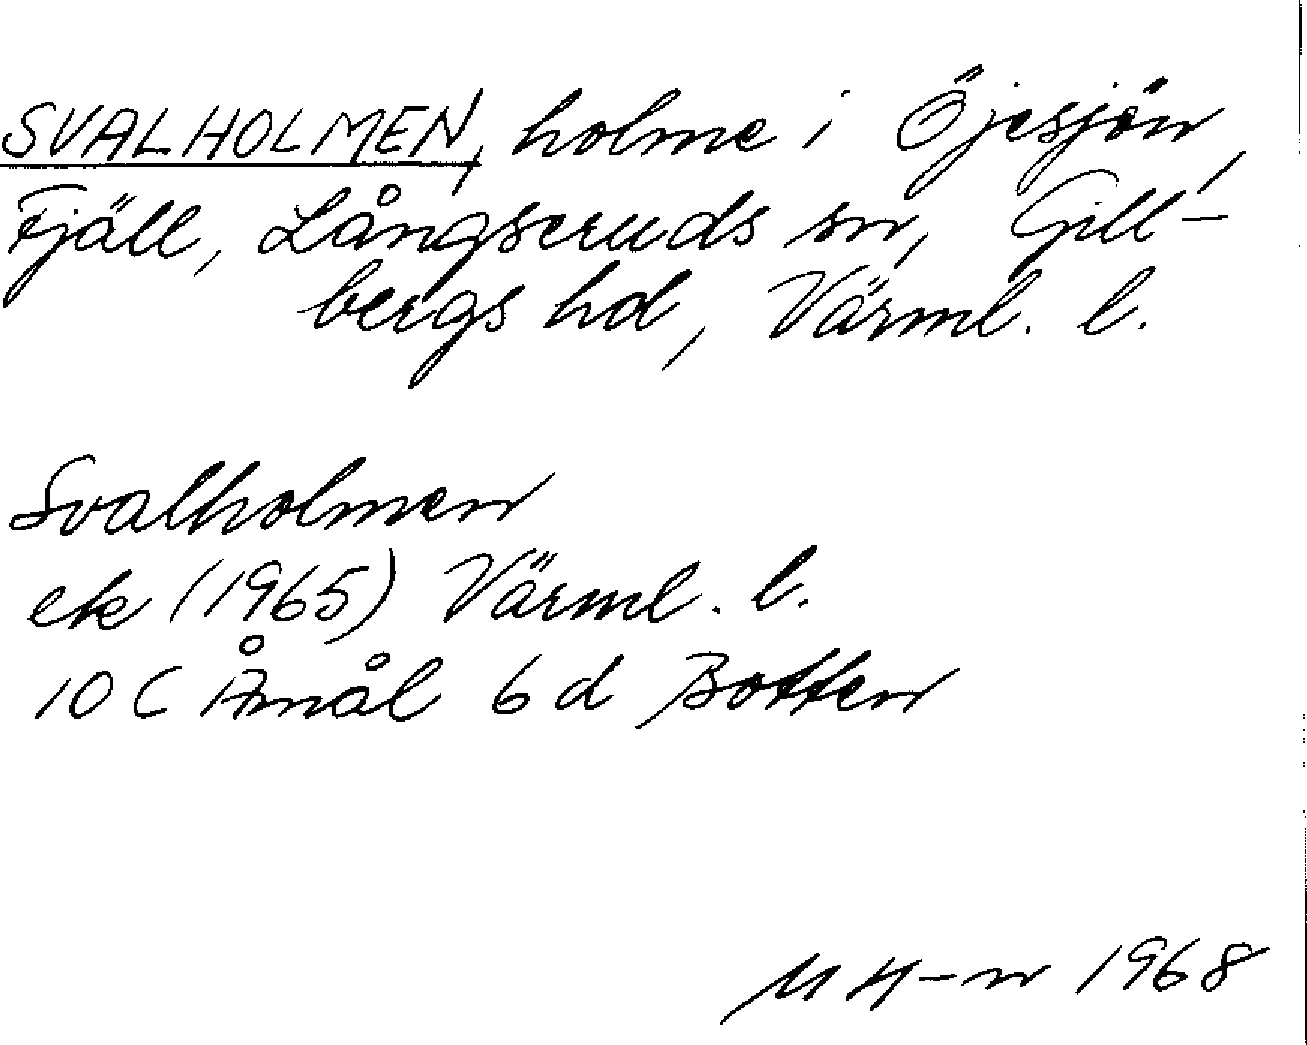 SVALHOLMEN, holme i Öjesjön,
Fjäll, Långseruds sn, Gill-
bergs hd, Värml. l.
Svalholmen
ek (1965) Värml. l.
10 C Åmål 6 d Botten
M H-n 1968